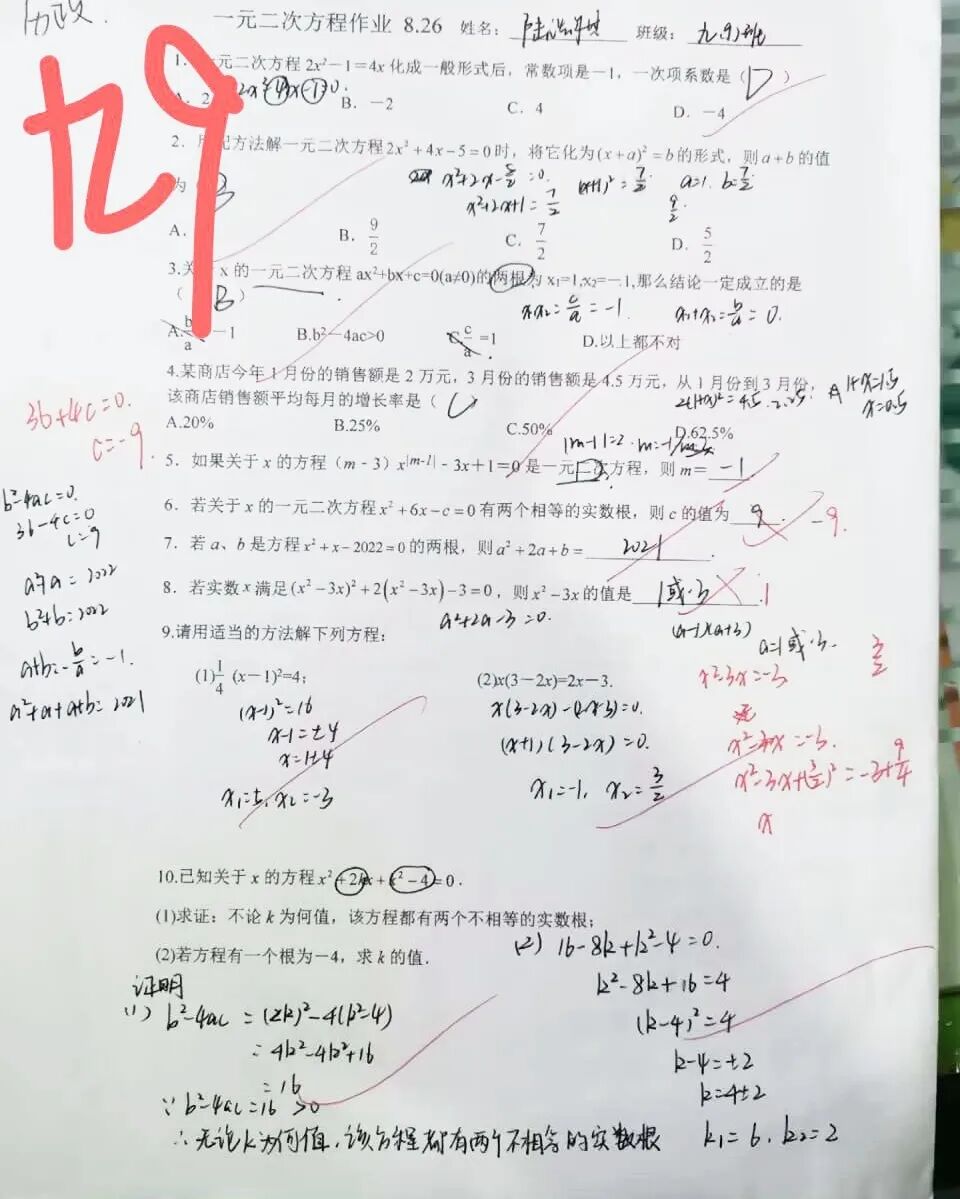 历政.
一元二次方程作业 8.26 姓名: 班级: 九(9)班
1. 元二次方程2x²－1=4x 化成一般形式后，常数项是－1，一次项系数是（ D ）
A. 2 B. －2 C. 4 D. －4
九9
2. 用配方法解一元二次方程2x²+4x-5=0时，将它化为(x+a)²=b的形式，则a+b的值
为 B
x²+2x-5/2=0. (x+1)²=7/2 a=1. b=7/2
x²+2x+1=7/2 9/2.
A. B. 9/2 C. 7/2 D. 5/2
3.关 x 的一元二次方程 ax²+bx+c=0(a≠0)的两根为 x₁=1,x₂=－1,那么结论一定成立的是
（ B ）
x₁x₂=c/a=-1. x₁+x₂=b/a=0.
A. b/a －1 B.b²－4ac>0 C. c/a =1 D.以上都不对
4.某商店今年 1 月份的销售额是 2 万元，3 月份的销售额是 4.5 万元，从 1 月份到 3 月份，
该商店销售额平均每月的增长率是（ C
2(1+x)²=4.5. 2.25. 1+x=1.5
x=0.5
A.20% B.25% C.50% D.62.5%
|m-1|=2. m=-1
5. 如果关于 x 的方程（m－3）x^|m-1| - 3x+1=0 是一元二次方程，则 m= -1
6. 若关于 x 的一元二次方程 x²+6x-c=0 有两个相等的实数根，则 c 的值为 9 . -9.
7. 若 a、b 是方程 x²+x-2022=0 的两根，则 a²+2a+b= 2021 .
8. 若实数 x 满足 (x²-3x)²+2(x²-3x)-3=0，则 x²-3x 的值是 1或-3 . 1
a²+2a-3=0. (a-1)(a+3)
a=1或-3.
36+4c=0.
c=-9.
b²-4ac=0.
36-4c=0
c=9
a²+a=2022
b²+b=2022
a+b=-b/a=-1.
a²+a+a+b=2021
9.请用适当的方法解下列方程：
(1)1/4 (x－1)²=4; (2)x(3－2x)=2x－3.
(x-1)²=16
x-1=±4
x=1±4
x₁=5, x₂=-3
x(3-2x)-(2x-3)=0.
(x+1)(3-2x)=0.
x₁=-1, x₂=3/2
3/2
x²-3x=-3
x²-3x=-3.
x²-3x+(3/2)²=-3+9/4
x
10.已知关于 x 的方程 x²+2kx+k²-4=0.
(1)求证：不论 k 为何值，该方程都有两个不相等的实数根；
(2)若方程有一个根为－4，求 k 的值.
证明
(1) b²-4ac=(2k)²-4(k²-4)
=4k²-4k²+16
=16
∵b²-4ac=16>0
∴无论k为何值,该方程都有两个不相等的实数根
(2) 16-8k+k²-4=0.
k²-8k+16=4
(k-4)²=4
k-4=±2
k=4±2
k₁=6. k₂=2